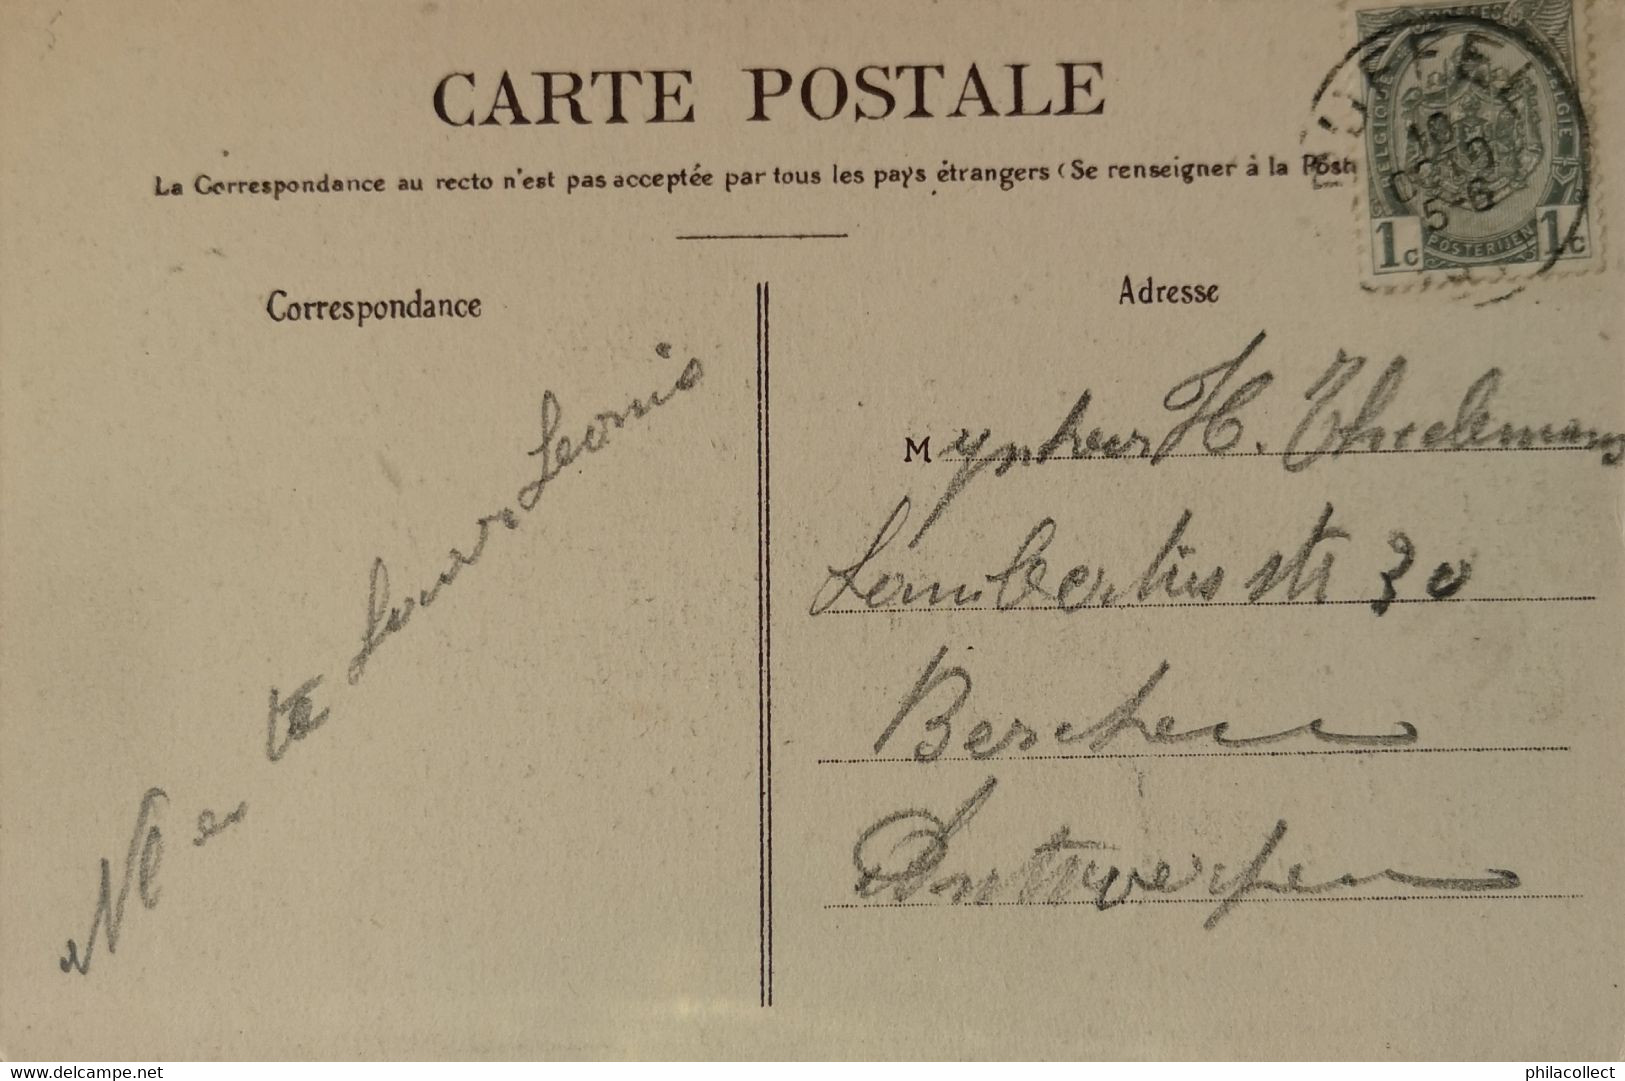 CARTE POSTALE
La Correspondance au recto n'est pas acceptée par tous les pays étrangers (Se renseigner à la Poste
BELGIQUE
BELGIE
1c POSTERIJEN 1c
5-6
Correspondance
Adresse
Mynheer H. Thielemans
Lambertus str 30
Berchem
Antwerpen
delcampe.net
philacollect